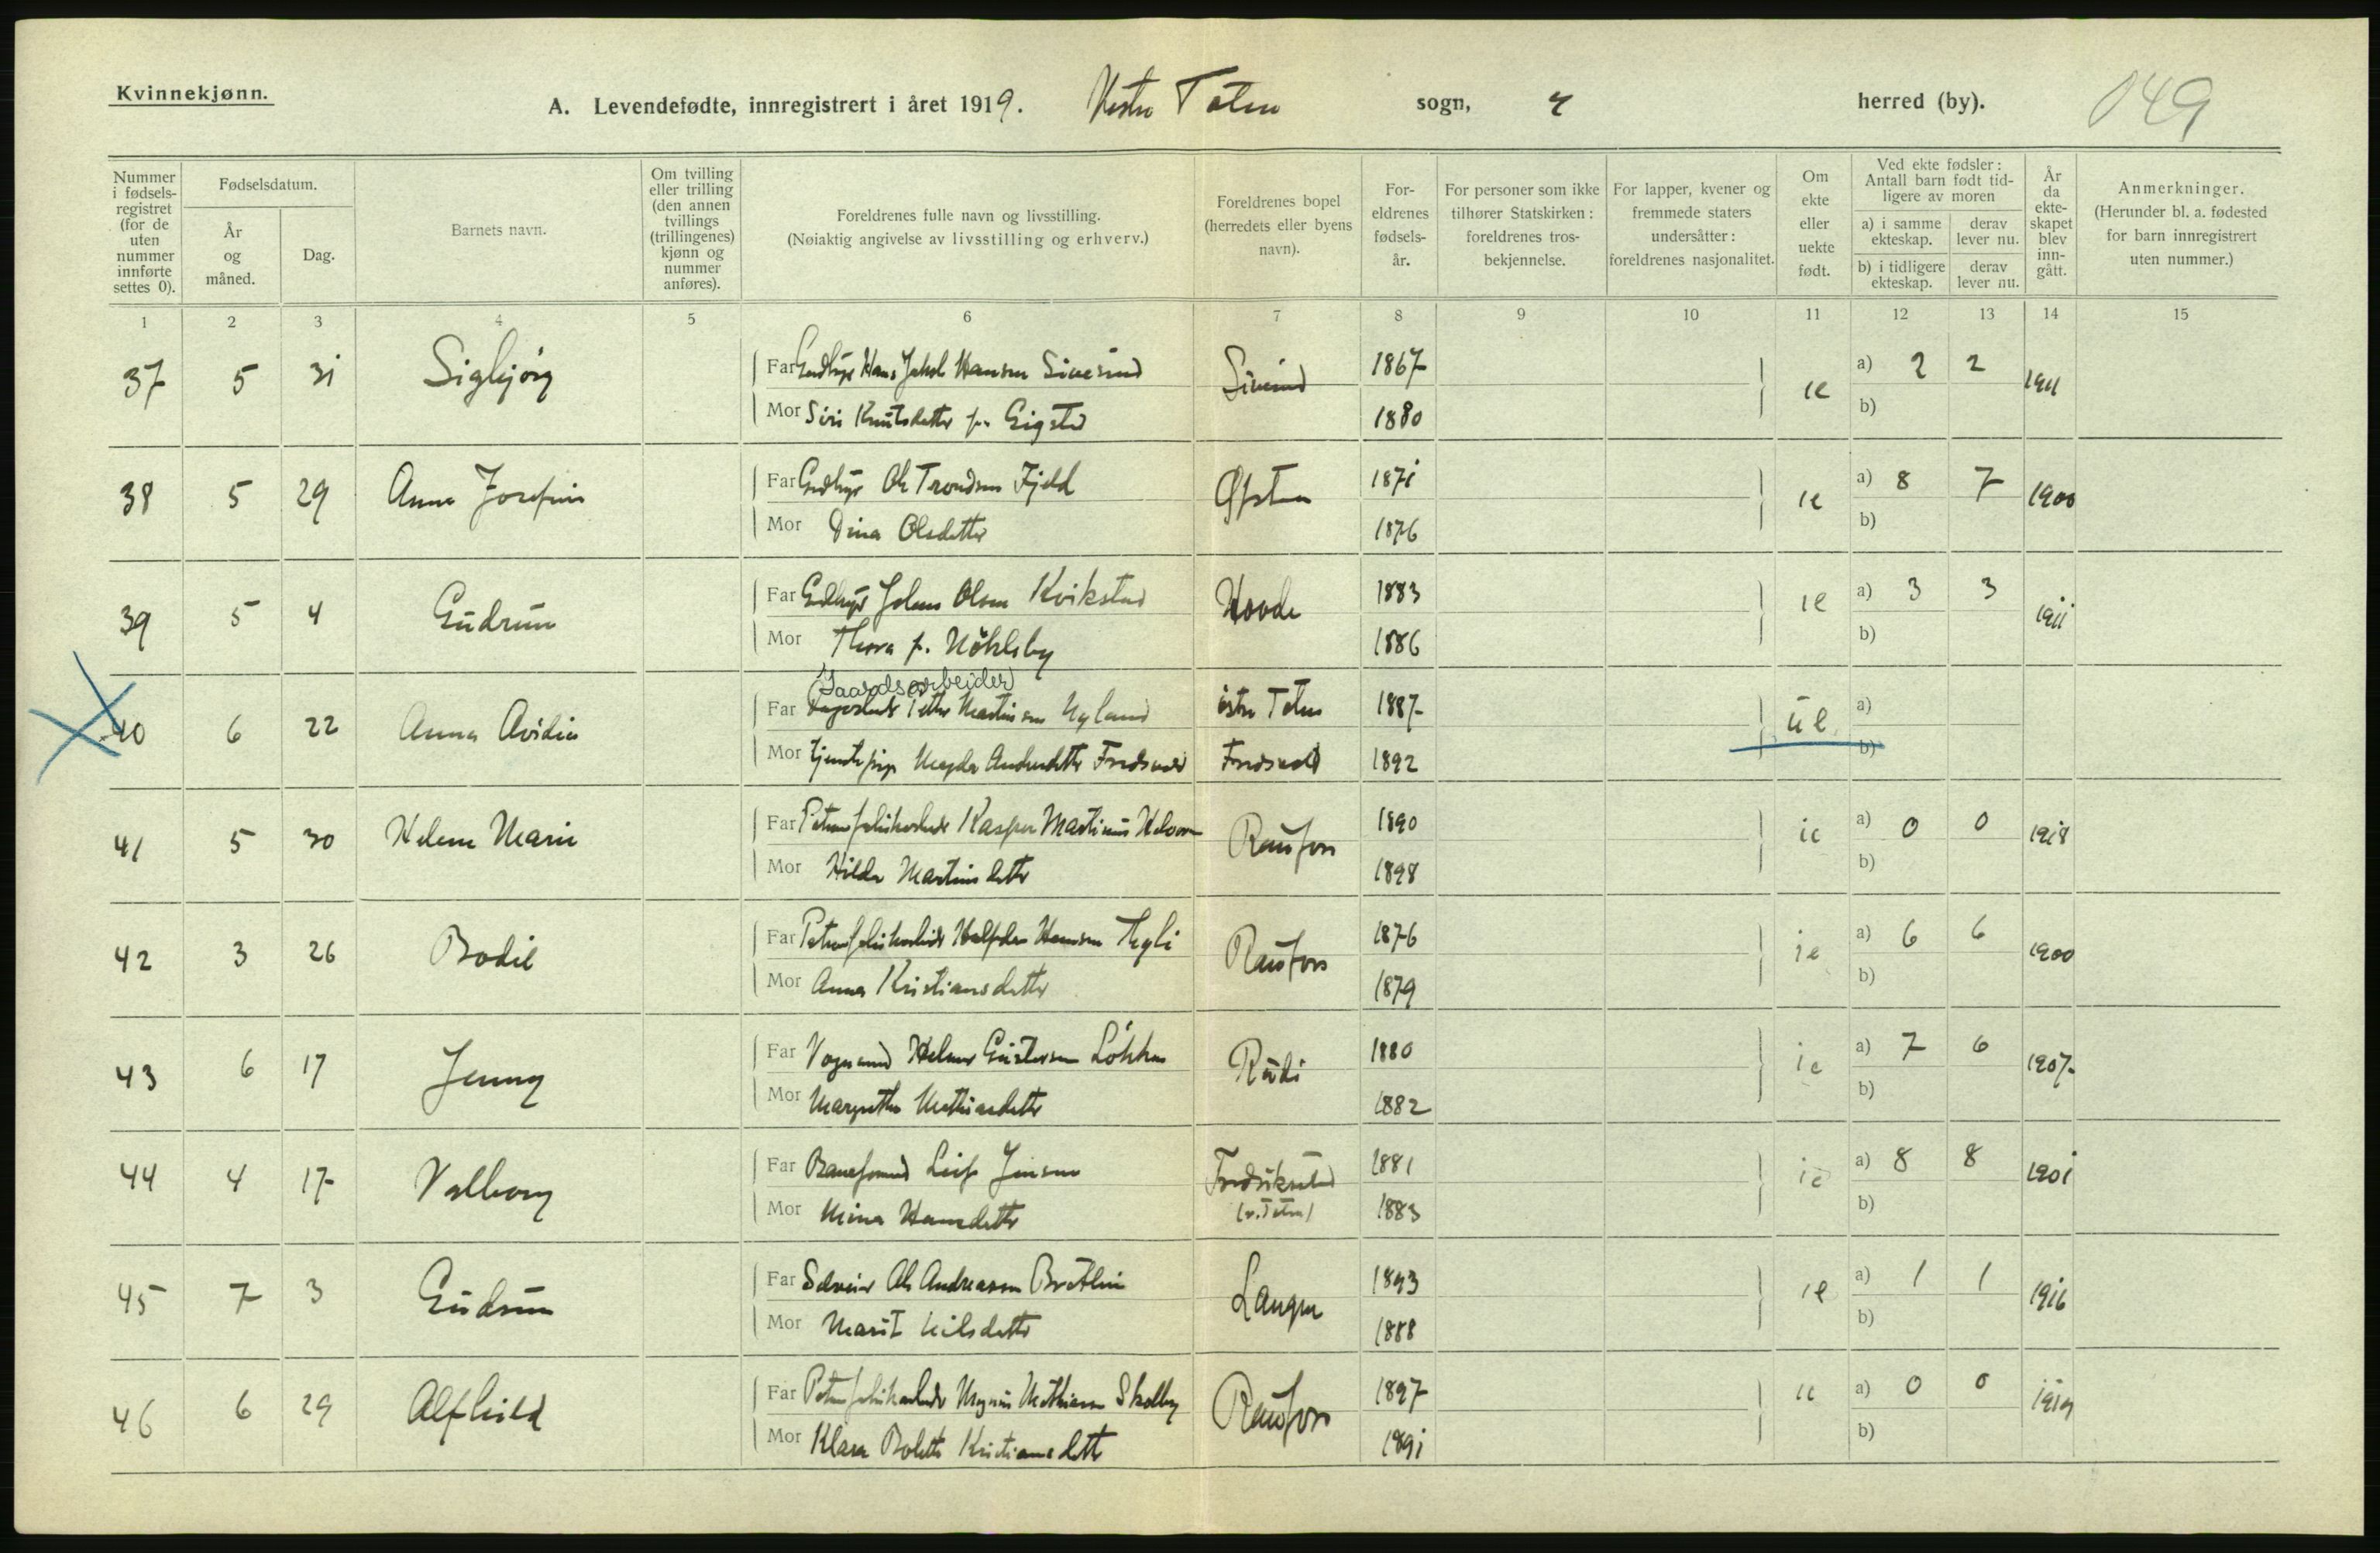 Kvinnekjønn.
A. Levendefødte, innregistrert i året 1919. Vestre Toten sogn, herred (by). 049
Nummer i fødsels-registret (for de uten nummer innførte settes 0).
Fødselsdatum.
År og måned.
Dag.
Barnets navn.
Om tvilling eller trilling (den annen tvillings (trillingenes) kjønn og nummer anføres).
Foreldrenes fulle navn og livsstilling.
(Nøiaktig angivelse av livsstilling og erhverv.)
Foreldrenes bopel (herredets eller byens navn).
For-eldrenes fødsels-år.
For personer som ikke tilhører Statskirken: foreldrenes tros-bekjennelse.
For lapper, kvener og fremmede staters undersåtter: foreldrenes nasjonalitet.
Om ekte eller uekte født.
Ved ekte fødsler: Antall barn født tid-ligere av moren
a) i samme ekteskap.
derav lever nu.
b) i tidligere ekteskap.
derav lever nu.
År da ekte-skapet blev inn-gått.
Anmerkninger.
(Herunder bl. a. fødested for barn innregistrert uten nummer.)
1 2 3 4 5 6 7 8 9 10 11 12 13 14 15
37 5 31 Sigbjørg Far Hans Jakob Hansen Sivesind Sivesind 1867 ie a) 2 2 1911
Mor Siri Knutsdatter f. Eigstad 1880 b)
38 5 29 Anna Josefine Far Ole Trondsen Fjeld Øfsten 1871 ie a) 8 7 1900
Mor Dina Olsdatter 1876 b)
39 5 4 Gudrun Far Johan Olsen Kvikstad 1883 ie a) 3 3 1911
Mor Thora f. Nøkleby 1886 b)
(Gaardsarbeider)
40 6 22 Anna Avidia Far Petter Martinsen Nyland østre Toten 1887 ue a)
Mor Magda Andersdatter 1892 b)
41 5 30 Helene Marie Far Kasper Martinius Raufoss 1890 ie a) 0 0 1918
Mor Hilda Martinsdatter 1898 b)
42 3 26 Bodil Far Halfdan Hansen Raufoss 1876 ie a) 6 6 1900
Mor Anna Kristiansdatter 1879 b)
43 6 17 Jenny Far Vognmand Helmer Gustavsen Løkken 1880 ie a) 7 6 1907
Mor Margrethe Mathiasdatter 1882 b)
44 4 17 Valborg Far Baneformand Leif Jensen Fredrikstad 1881 ie a) 8 8 1901
(v. Toten)
Mor Mina Hansdatter 1883 b)
45 7 3 Gudrun Far Ole Andreasen 1893 ie a) 1 1 1916
Mor Marit Nilsdatter 1888 b)
46 6 29 Alfhild Far Magnus Mathiasen Raufoss 1897 ie a) 0 0 1919
Mor Klara Bolette Kristiansdatter 1891 b)